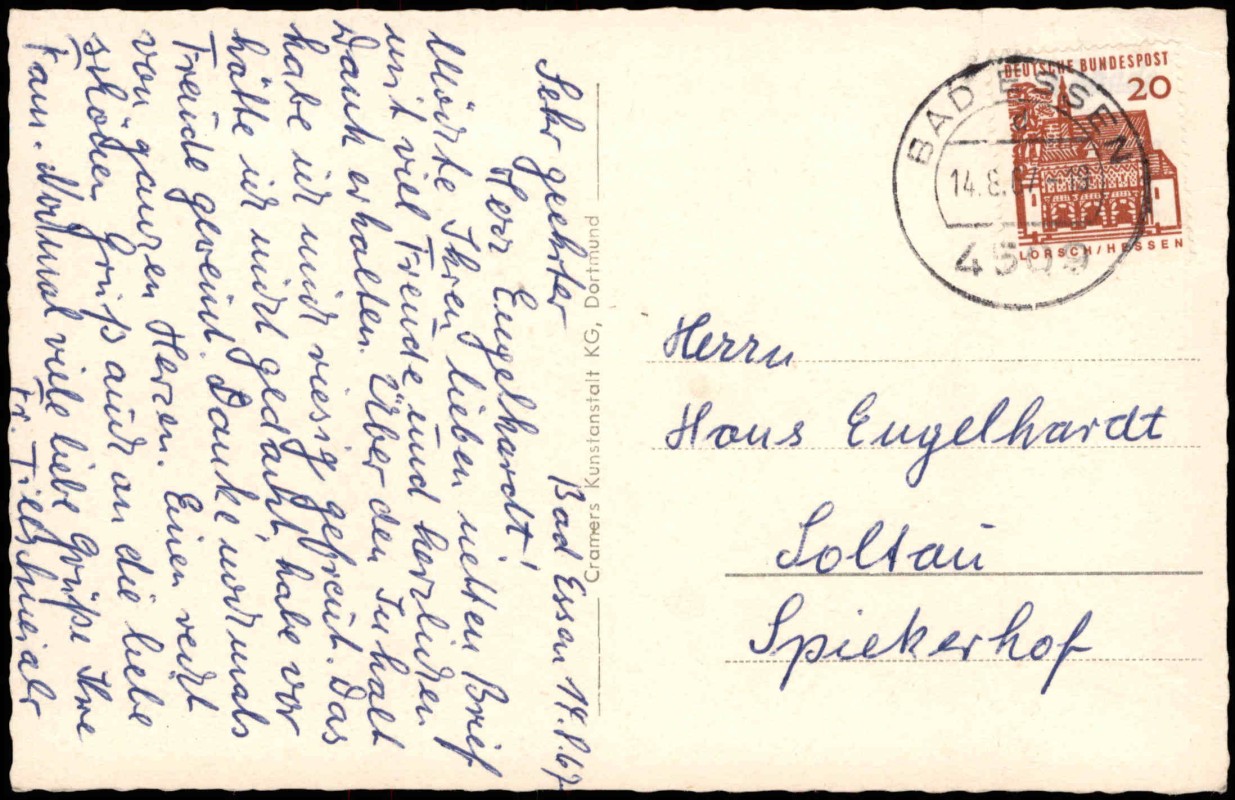 Bad Essen 14.8.67
Sehr geehrter
Herr Engelhardt!
Möchte Ihren lieben netten Brief
mit viel Freude und herzlichen
Dank erhalten. Über den Inhalt
habe ich mich riesig gefreut. Das
hätte ich nicht gedacht habe vor
Freude geweint. Danke nochmals
von ganzen Herzen. Einen recht
schönen Gruß auch an die liebe
Fam. Nochmal viele liebe Grüße Ihre
Fr.
Cramers Kunstanstalt KG, Dortmund
DEUTSCHE BUNDESPOST
20
LORSCH/HESSEN
BAD ESSEN
d
14.8.67-18
4509
Herrn
Hans Engelhardt
Soltau
Spiekerhof